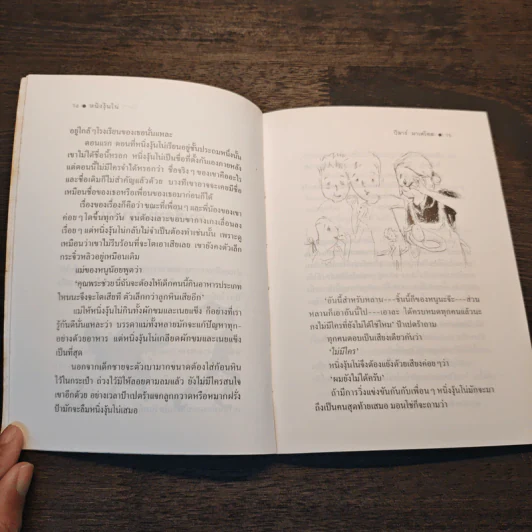 ๑๔ ● หนึ่งวุ้นโน่
อยู่ใกล้ๆโรงเรียนของเธอนั่นแหละ
ตอนแรก ตอนที่หนึ่งวุ้นโน่เรียนอยู่ชั้นประถมหนึ่งนั้น
เขาไม่ได้ชื่อนี้หรอก หนึ่งวุ้นโน่เป็นชื่อที่ตั้งกันเองภายหลัง
แต่ตอนนี้ไม่มีใครจำได้หรอกว่า ชื่อจริงๆ ของเขาคืออะไร
และชื่อเดิมก็ไม่สำคัญแล้วด้วย บางทีเขาอาจจะเคยมีชื่อ
เหมือนชื่อของเธอหรือเพื่อนของเธอมาก่อนก็ได้
เรื่องของเรื่องก็คือว่า ขณะที่เพื่อนๆ และพี่น้องของเขา
ค่อยๆ โตขึ้นทุกวัน จนต้องเลาะขอบขากางเกงเลื่อนลง
เรื่อยๆ แต่หนึ่งวุ้นโน่กลับไม่จำเป็นต้องทำเช่นนั้น เพราะดู
เหมือนว่าเขาไม่รีบร้อนที่จะโตเอาเสียเลย เขายังคงตัวเล็ก
กระจิ๋วหลิวอยู่เหมือนเดิม
แม่ของหนูน้อยพูดว่า
‘คุณพระช่วย นี่ฉันจะต้องให้เด็กคนนี้กินอาหารประเภท
ไหนนะจึงจะโตเสียที ตัวเล็กกว่าลูกหินเสียอีก’
แม่ให้หนึ่งวุ้นโน่กินทั้งผักขมและเนยแข็ง ก็อย่างที่เรา
รู้กันดีนั่นแหละว่า บรรดาแม่ทั้งหลายมักจะแก้ปัญหาทุก-
อย่างด้วยอาหาร แต่หนึ่งวุ้นโน่เกลียดผักขมและเนยแข็ง
เป็นที่สุด
นอกจากเด็กชายจะตัวเบามากขนาดต้องใส่ก้อนหิน
ไว้ในกระเป๋า ถ่วงไว้มิให้ลอยตามลมแล้ว ยังไม่มีใครสนใจ
เขาอีกด้วย อย่างเวลาป้าเปดร้าแจกลูกกวาดหรือหมากฝรั่ง
ป้ามักจะลืมหนึ่งวุ้นโน่เสมอ
● ๑๕
‘อันนี้สำหรับหลาน—ชิ้นนี้ก็ของหนูนะจ๊ะ—ส่วน
หลานก็เอาอันนี้ไป—เอาละ ได้ครบหมดทุกคนแล้วนะ
คงไม่มีใครที่ยังไม่ได้ใช่ไหม’ ป้าเปดร้าถาม
ทุกคนตอบเป็นเสียงเดียวกันว่า
‘ไม่มีใคร’
หนึ่งวุ้นโน่จึงต้องแย้งด้วยเสียงค่อยๆ ว่า
‘ผมยังไม่ได้ครับ’
ถ้ามีการวิ่งแข่งขันกันกับเพื่อนๆ หนึ่งวุ้นโน่มักจะมา
ถึงเป็นคนสุดท้ายเสมอ มอนโซก็จะถามว่า